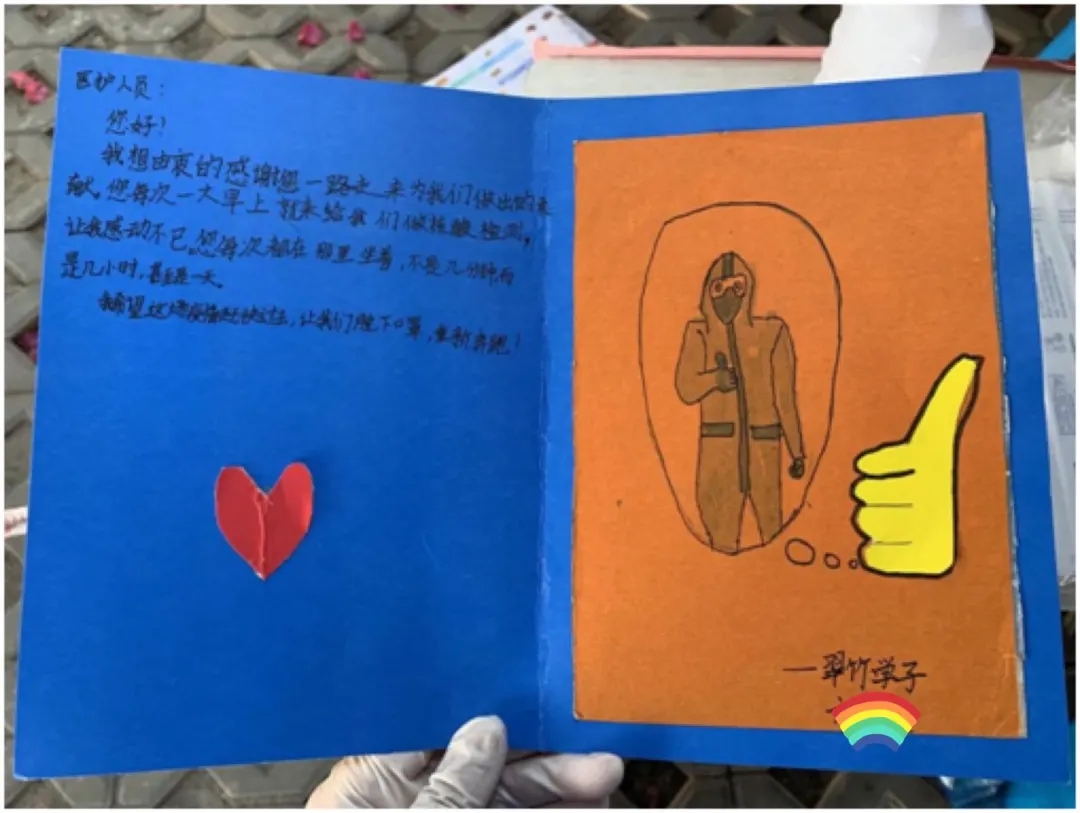 医护人员：
您好！
我想由衷的感谢您一路走来为我们做出的贡
献。您每次一大早上就来给我们做核酸检测，
让我感动不已。您每次都在那里坐着，不是几分钟，而
是几小时，甚至是一天。
我希望这场疫情赶快过去，让我们脱下口罩，重新奔跑！
—翠竹学子